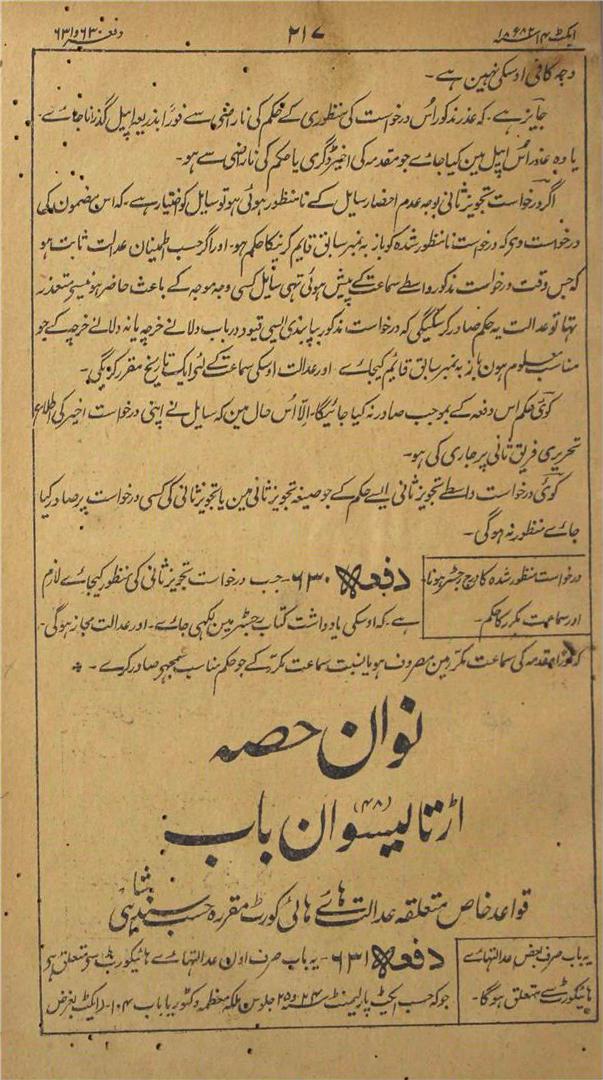 ایکٹ ۱۴ سنہ ۱۸۸۲ء
۲۱۷
دفعہ ۶۳۰ و ۶۳۱
وجہ کافی اوسکی نہین ہے۔
جایز ہے۔ کہ عذر مذکور اُس درخواست کی منظوری کے حکم کی ناراضی سے فوراً بذریعہ اپیل گذرانا جاے۔
یا وہ عذر اُس اپیل مین کیا جاے جو مقدمہ کی اخیر ڈگری یا حکم کی ناراضی سے ہو۔
اگر درخواست تجویز ثانی بوجہ عدم احضار سایل کے نامنظور ہوئی ہو تو سایل کو اختیار ہے۔ کہ اس مضمون کی
درخواست دی کہ درخواست نامنظور شدہ کو باز بہ نمبر سابق قایم کرنیکا حکم ہو۔ اور اگر حسب اطمینان عدالت ثابت ہو
کہ جس وقت درخواست مذکور واسطے سماعت کے پیش ہوئی تہی سایل کسی وجہ موجہ کے باعث حاضر ہونے سے متعذر
تہا تو عدالت یہ حکم صادر کر سکیگی کہ درخواست مذکور بپابندی ایسی قیود در باب دلانے خرچہ یا نہ دلانے خرچہ کے جو
مناسب معلوم ہون باز بہ نمبر سابق قایم کیجاے اور عدالت اوسکی سماعت کے لئی ایک تاریخ مقرر کریگی۔
کوئی حکم اس دفعہ کے بموجب صادر نہ کیا جائیگا۔ اِلّا اُس حال مین کہ سایل نے اپنی درخواست اخیر کی اطلاع
تحریری فریق ثانی پر جاری کی ہو۔
کوئی درخواست واسطے تجویز ثانی ایسے حکم کے جو صیغہ تجویز ثانی مین یا تجویز ثانی کی کسی درخواست پر صادر کیا
جاے منظور نہ ہوگی۔
درخواست منظور شدہ کا درج رجسٹر ہونا۔
اور سماعت مکرر کا حکم۔
دفعہ ۶۳۰۔ جب درخواست تجویز ثانی کی منظور کیجاے لازم
ہے۔ کہ اوسکی یادداشت کتاب رجسٹر مین لکہی جاے۔ اور عدالت مجاز ہوگی۔
کہ فوراً مقدمہ کی سماعت مکرر مین مصروف ہو یا بنسبت سماعت مکرر کے جو حکم مناسب سمجہے صادر کرے۔
نوان حصہ
اڑتالیسوان (۴۸) باب
قواعد خاص متعلقہ عدالت ہائے ہائی کورٹ مقررہ حسب منشاء سند شاہی
یہ باب صرف بعض عدالتہاے
ہائیکورٹ سے متعلق ہوگا۔
دفعہ ۶۳۱۔ یہ باب صرف اون عدالتہاے ہائیکورٹ سے متعلق ہے
جو کہ حسب ایکٹ پارلیمنٹ سنہ ۲۴ و ۲۵ جلوس ملکہ معظمہ وکٹوریا باب ۱۰۴۔ (ایکٹ بغرض